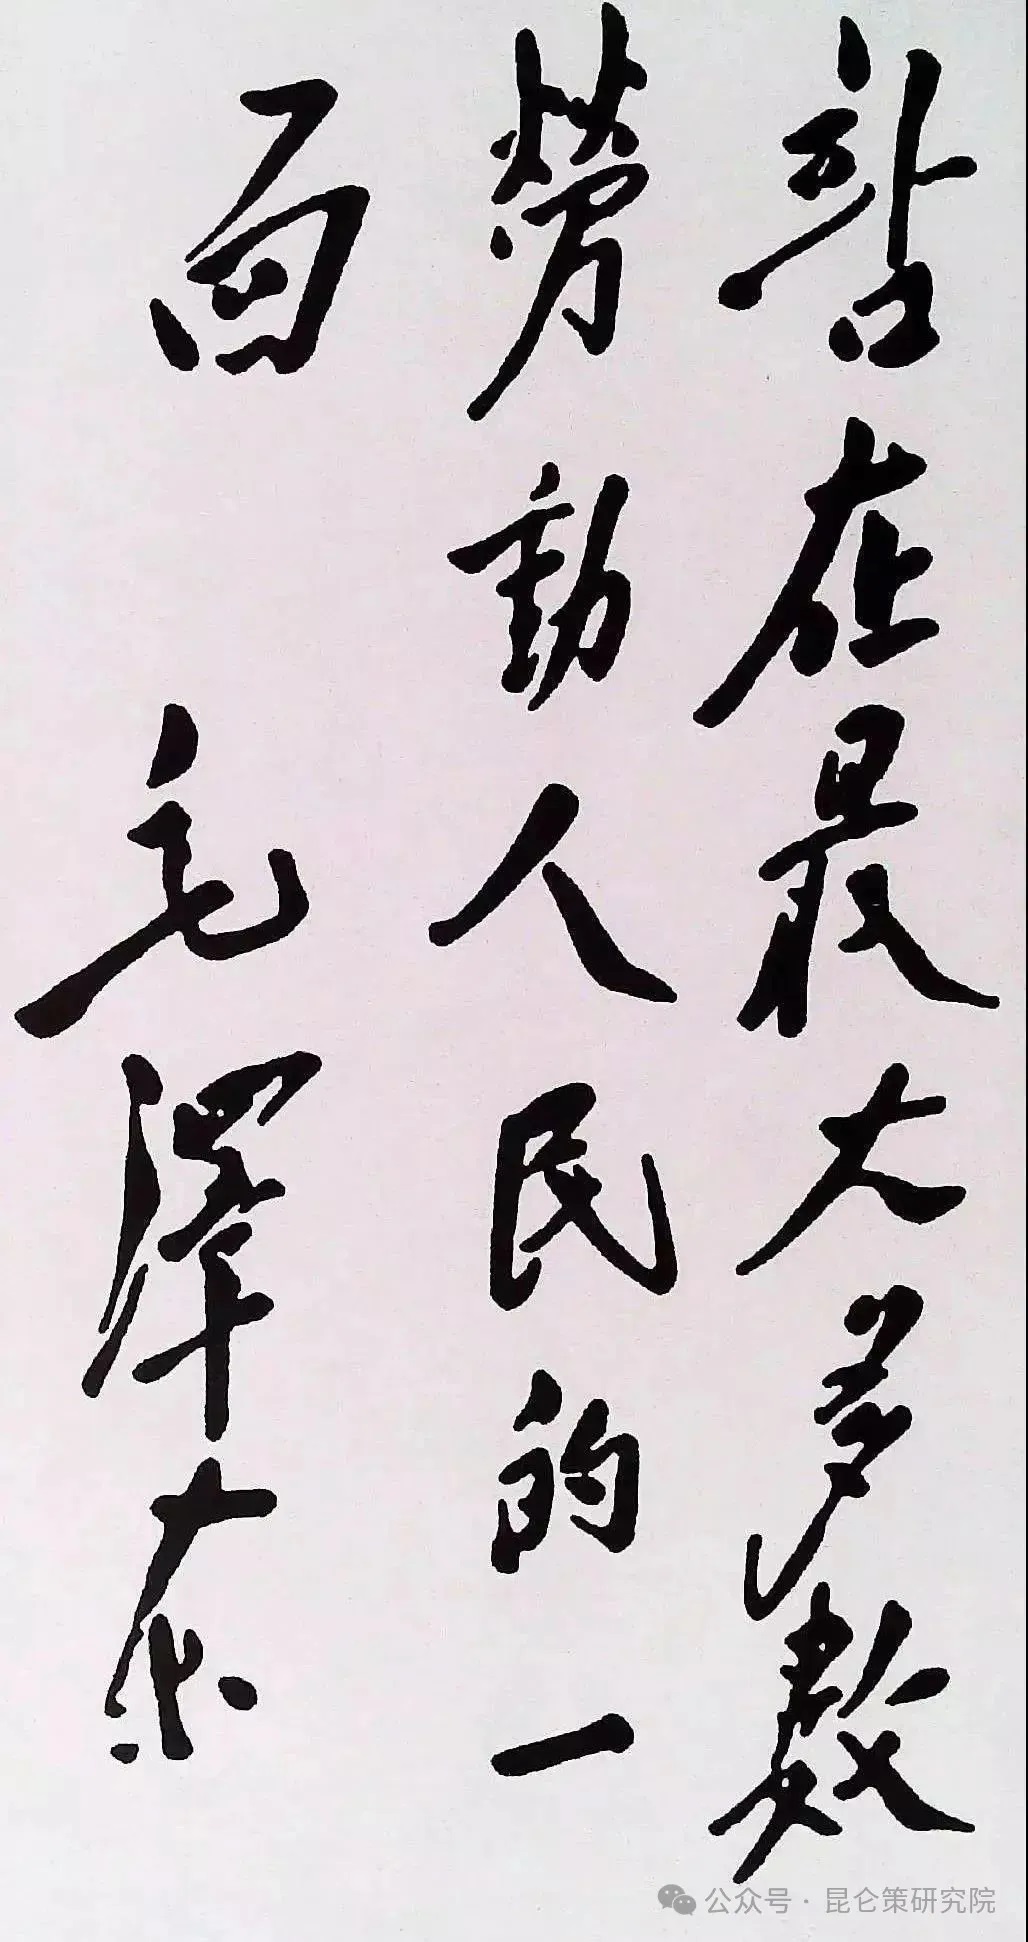 站在最大多数
劳动人民的一
面
毛泽东
公众号 · 昆仑策研究院